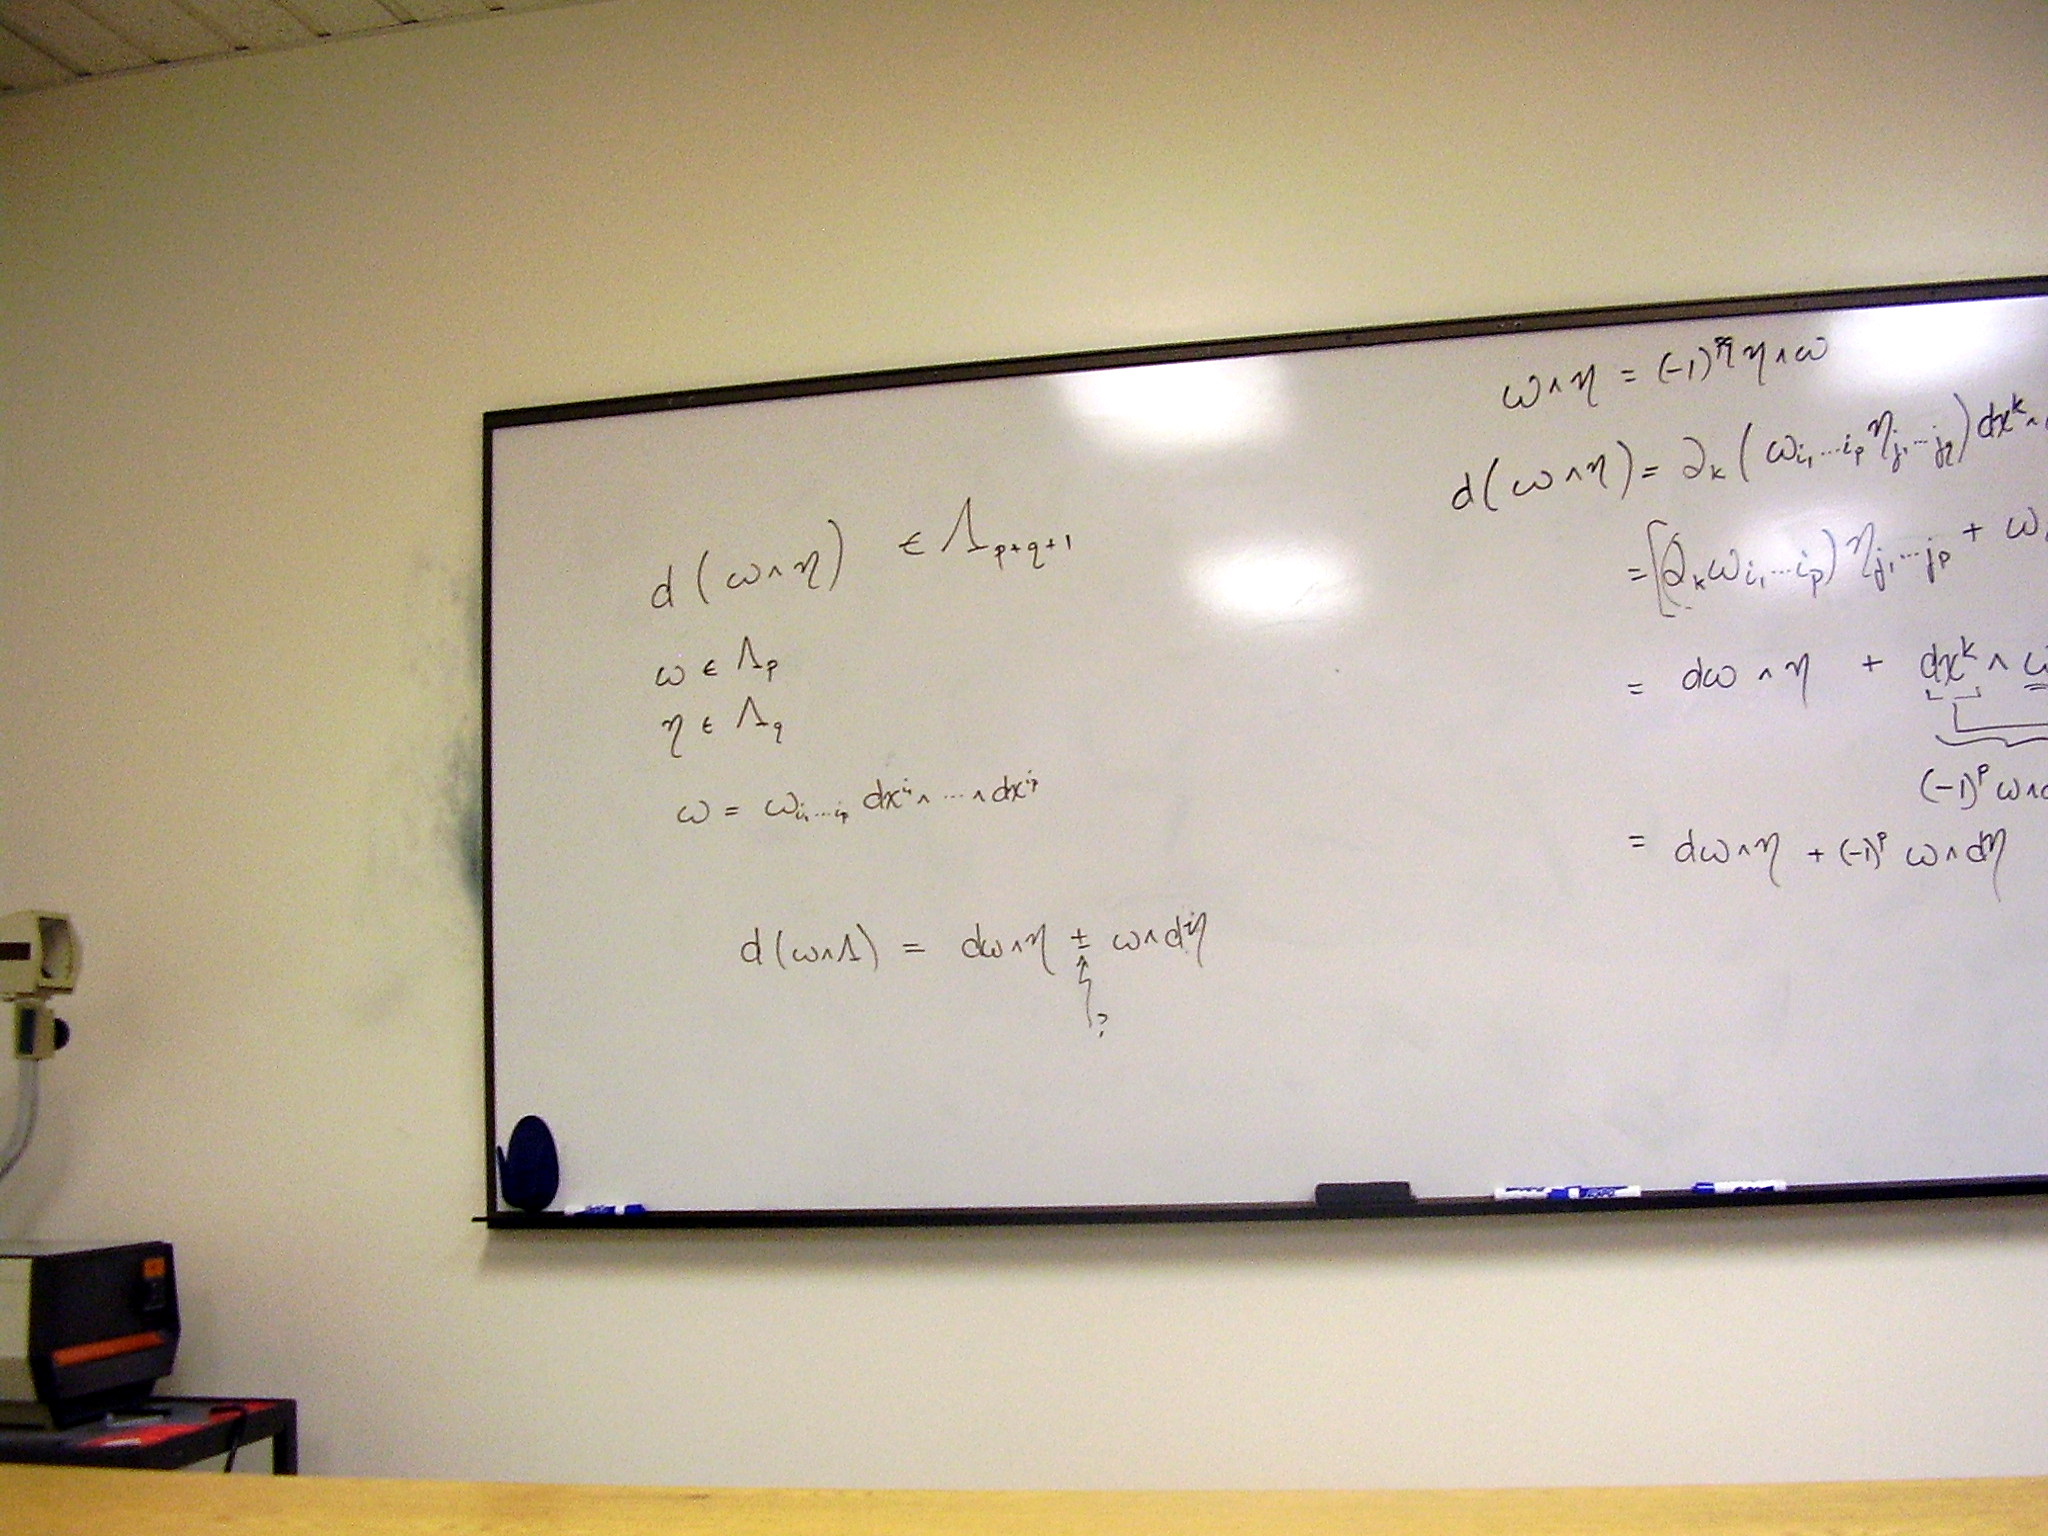 d(ω∧η) ∈ Λ_{p+q+1}
ω ∈ Λ_p
η ∈ Λ_q
ω = ω_{i₁…i_p} dx^{i₁} ∧ … ∧ dx^{i_p}
d(ω∧Λ) = dω∧η ± ω∧dη
?
ω∧η = (-1)^{pq} η∧ω
d(ω∧η) = ∂_k (ω_{i₁…i_p} η_{j₁…j_q}) dx^k ∧
= [(∂_k ω_{i₁…i_p}) η_{j₁…j_p} + ω
= dω ∧ η + dx^k ∧ ω
(-1)^p ω∧d
= dω∧η + (-1)^p ω∧dη